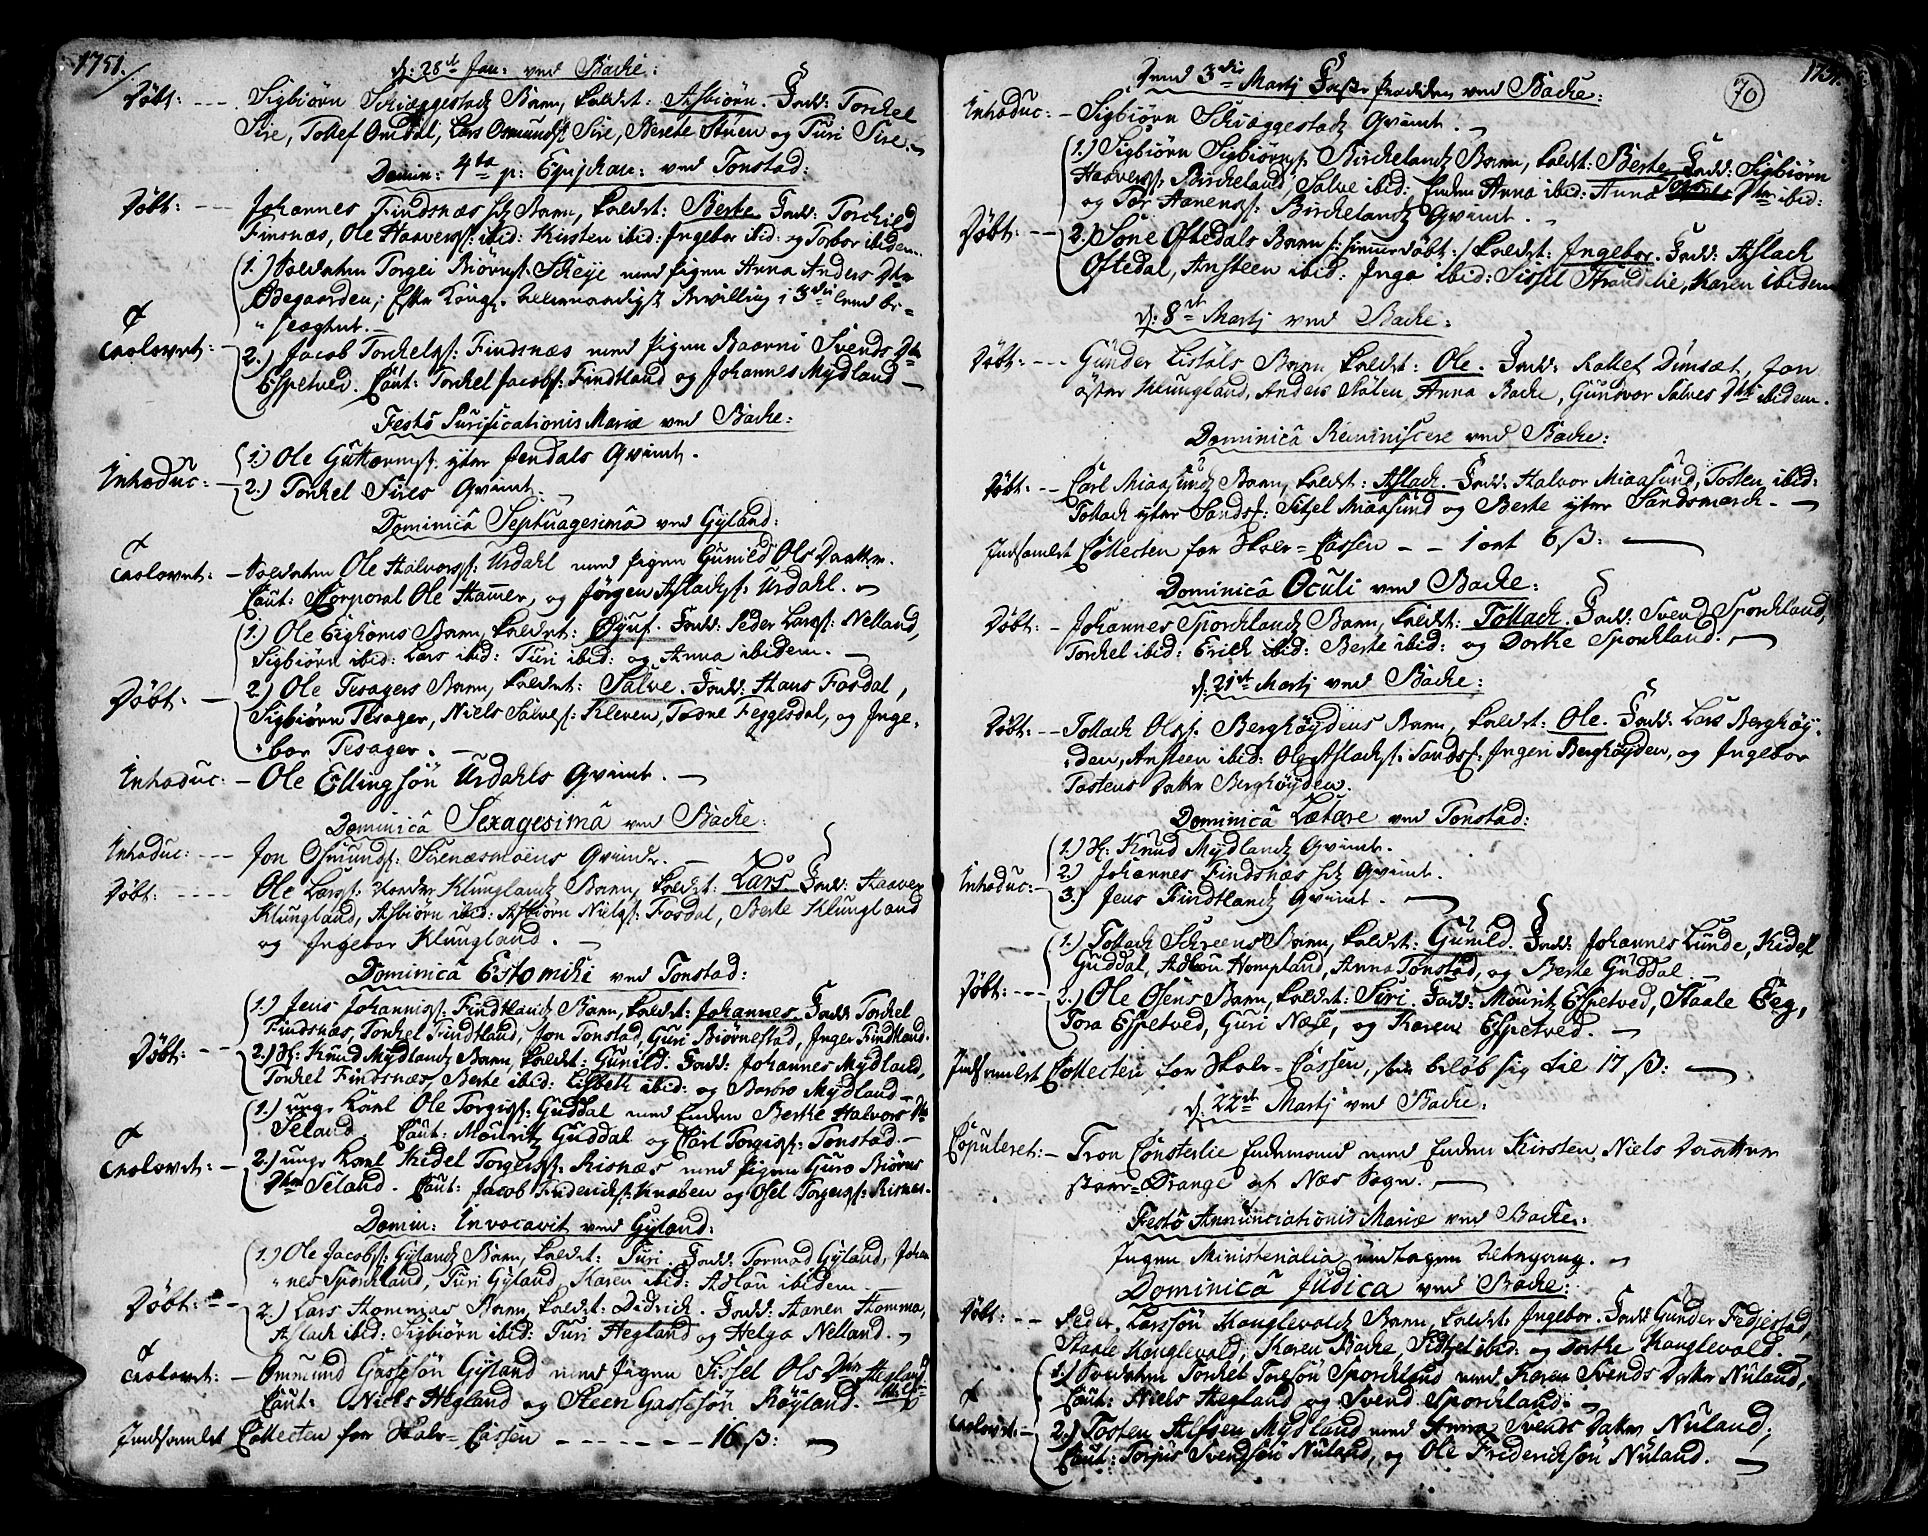 1751.
d: 28de Jan: ved Backe:
Døbt: --- Sigbiørn Schieggestads Barn, kaldet: Asbiørn. Fadd: Torchel
Sire, Tollef Omdal, Lars Osmunds: Sire, Berete Stuen og Turi Sire.
Domin: 4ta p: Epiphan: ved Tonstad:
Døbt: --- Johannes Findsnæs Barn, kaldet: Berte. Fadd: Torchild
Finsnæs, Ole Haavers: ibid: Kirsten ibid: Ingebor ibid: og Torbor ibidem.
1.) Soldaten Torgei Biørns: Scheije med Pigen Anna Anders Dtr
ØDegaarden; Efter Kongl. allernaadigst bevilling i 3die Leed be-
seogtert.
Trolovet: 2.) Jacob Torchels: Findsnæs med Pigen Baarni Svends Dtr
Espetved. Caut: Torchel Jacobs: Findtland og Johannes Mydland
Festo Purificationis Mariæ ved Backe:
Introduc: 1.) Ole Guttorms: yter Jendals Qvinde.
2.) Torchel Sires Qvinde.
Dominica Septuagesima ved Gyland:
Trolovet: - Soldaten Ole Halvors: Urdahl med Pigen Gunild Ols Daatter.
Caut: Corporal Ole Hamer, og Jørgen Aslachs: Urdahl.
1.) Ole Eighoms Barn, kaldet: Øyuf. Fadd: Peder Lars: Nelland,
Sigbiørn ibid: Lars ibid: Turi ibid: og Anna ibidem.
Døbt: - 2.) Ole Tesagers Barn, kaldet: Salve. Fadd: Hans Fosdal,
Sigbiørn Tesager, Niels Salves: Kleven, Todne Feggesdal, og Inge-
bor Tesager.
Introduc: - Ole Ellingsøn Urdahls Qvinde.
Dominica Sexagesima ved Backe:
Introduc: --- Jon Osmunds: Sirenæsmoens Qvinde.
Døbt: ---- Ole Lars: Klunglands Barn, kaldet: Lars. Fadd: Haaver
Klungland, Asbiørn ibid: Asbiørn Niels: Fosdal, Berte Klungland
og Ingebor Klungland.
Dominica Estomihi ved Tonstad:
1.) Jens Johannis: Findtlands Barn, kaldet: Johannes. Fadd: Torkel
Findsnæs, Torkel Findtland, Jon Tonstad, Guri Biørnestad, Inger Findtland.
Døbt: -- 2.) H: Knud Mydlands Barn, kaldet: Gunild. Fadd: Johannes Mydland,
Torkel Findsnæs, Berte ibid: Lisbeth ibid: og Barbro Mydland
1.) unge Karl Ole Torgis: Guddal med Enken Berthe Halvors Dtr
Seland. Caut: Mouritz Guddal og Carl Torgis: Tonstad.
Trolovet: - 2.) unge Karl Kidel Torgers: Risnæs med Pigen Guro Biørns
Dtr Seland. Caut: Jacob Friderichs: Knaben og Osel Torgers: Risnes.
Domin: Invocavit ved Gyland:
1.) Ole Jacobs: Gylands Barn, kaldet: Turi. Fadd: Tormod Gyland, Johan-
nes Sporchland, Turi Gyland, Karen ibid: Adlau ibidem
Døbt: -- 2.) Lars Hommes Barn, kaldet: Didrich. Fadd: Hanen Homma,
Aslach ibid: Sigbiørn ibid: Turi Hegland og Helga Nelland.
Trolovet: - Ommund Gassesøn Gyland med Pigen Sissel Ols Dtr Hegland
Caut: Niels Hegland og Steen Gassesøn Røyland.
Indsamlet Collecten for Skole-Cassen ------ 16 ß:
1751. 70
Dend 3die Martj Faste Prædiken ved Backe:
Introduc: - Sigbiørn Schieggestads Qvinde.
1.) Sigbiørn Sigbiørns: Birchelands Barn, kaldet: Berte. Fadd: Sigbiørn
Haavers: Bircheland, Salve ibid: Enken Anna ibid: Anna Dtr ibid:
og Tor Hanens: Birchelands Qvinde.
Døbt: -- 2.) Sone Oftedals Barn /: hiemmedøbt: / kaldet: Ingebor. Fadd: Aslach
Oftedal, Ansteen ibid: Inga ibid: Sissel Strandelie, Karen ibidem
d: 8de Martj ved Backe:
Døbt: --- Gunder Listøls Barn kaldet: Ole. Fadd: Rollef Dunsæt, Jon
øster Klungland, Anders Stølen Anna Backe, Gundvor Salves Dtr ibidem.
Dominica Reminiscere ved Backe:
Døbt: -- Carl Miaasunds Barn, kaldet: Aslach. Fadd: Halvor Miaasund, Tosten ibid:
Tollach yter Sands: Sitsel Miaasund og Berte yter Sandsmarck.
Indsamlet Collecten for Skole-Cassen -- 1 ort 6 ß:
Dominica Oculi ved Backe:
Døbt: - Johannes Sporchlands Barn, kaldet: Tollach. Fadd: Svend Sporchland,
Torchel ibid: Erich ibid: Berte ibid: og Dorthe Sporchland.
d: 21de Martj ved Backe:
Døbt: -- Tollach Ols: Berghøydens Barn, kaldet: Ole. Fadd: Lars Berghøy-
den, Ansteen ibid: Ole Aslachs: Sands: Ingeri Berghøyden, og Ingebor
Tostens Datter Berghøyden.
Dominica Lætare ved Tonstad:
1.) H: Knud Mydlands Qvinde.
Introduc: 2.) Johannes Findsnæs Qvinde.
3.) Jens Findtlands Qvinde.
1.) Tollach Schreens Barn, kaldet: Gunild. Fadd: Johannes Lunde, Kidel
Guddal, Adlou Hompland, Anna Tonstad, og Berte Guddal.
Døbt: --- 2.) Ole Osens Barn, kaldet: Siri. Fadd: Mouritz Espetved, Staale Eeg,
Tora Espetved, Guri Næse, og Karen Espetved.
Indsamlet Collecten for Skole-Cassen, beløb sig til 17 ß:
d: 22de Martj ved Backe:
Copuleret: - Tron Consterlie Enkemand med Enken Kirsten Niels Daatter
store-Drange af Næs Sogn.
Festo Annunciationis Mariæ ved Backe:
Ingen Ministerialia undtagen Altergang.
Dominica Judica ved Backe:
Døbt: -- Peder Larssøn Hauglevolds Barn, kaldet: Ingebor. Fadd: Gunder Fedjestad,
Staale Hauglevold, Karen Backe, Sidtzel ibid: og Dorthe Hauglevold.
1.) Soldaten Torkel Toresøn Sporchland med Karen Svends Datter Nuland;
Caut: Niels Hegland og Svend Sporchland.
Trolovet: - 2.) Tosten Alfsen Mydland med Anna Svends Datter Nuland;
Caut: Torjus Svendsøn Nuland, og Ole Friderichsøn Nuland.